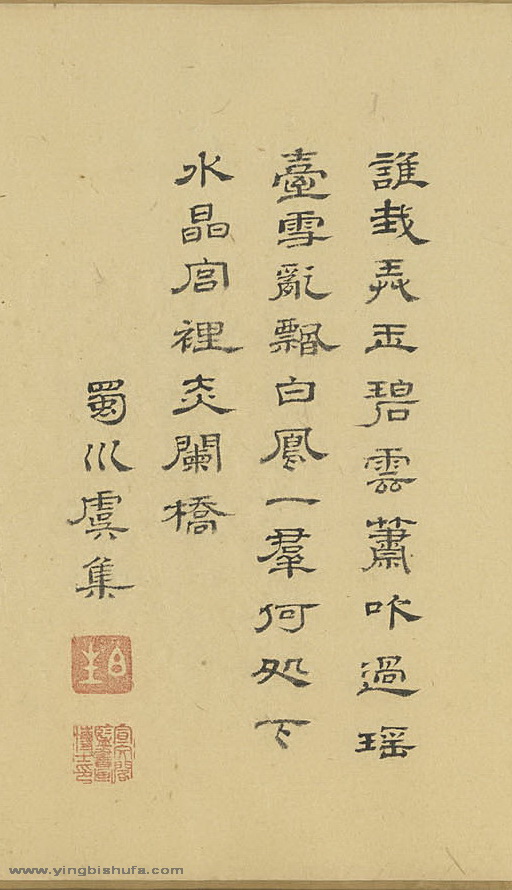 誰哉弄玉碧雲蕭吹過瑤
臺雪亂飄白鳳一羣何処下
水晶宮裡赤闌橋
蜀川虞集
www.yingbishufa.com